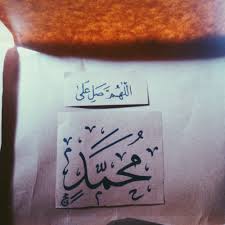 اللَّهُمَّ صَلِّ عَلَى
مُحَمَّدٍ